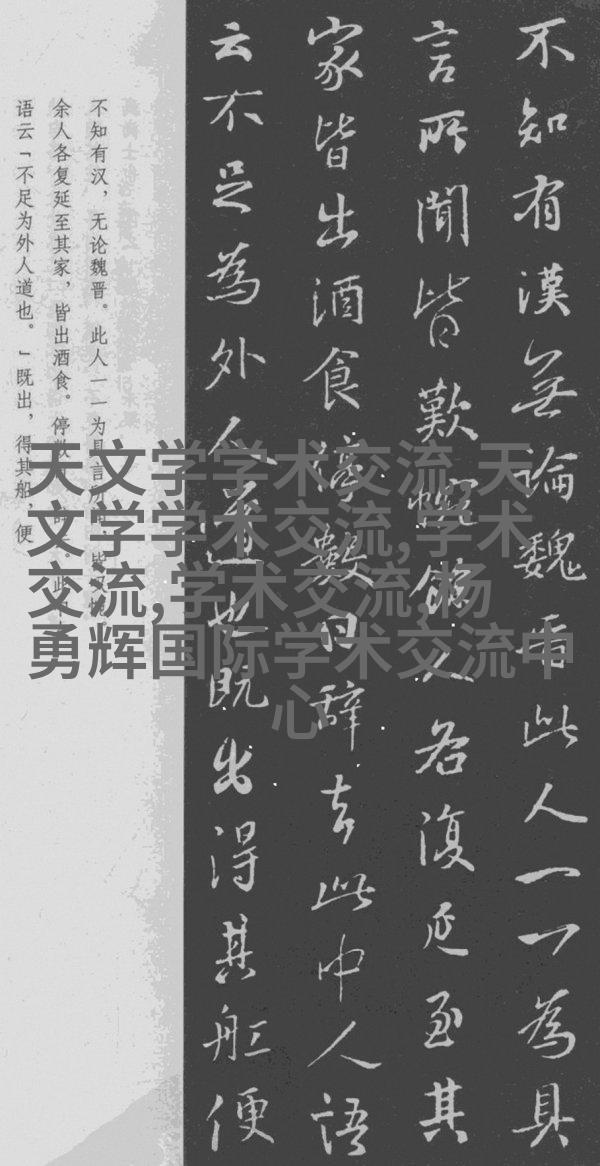 不知有漢無論魏晋此人一一為具
言所聞皆歎惋餘人各復延至其
家皆出酒食停數日辭去此中人語
云不足為外人道也既出得其船便
不知有汉，无论魏晋。此人一一为具言所闻，皆叹惋。
余人各复延至其家，皆出酒食。停数
语云「不足为外人道也。」既出，得其船，便
天文学学术交流,天
文学学术交流,学术
交流,学术交流,杨
勇辉国际学术交流中
心